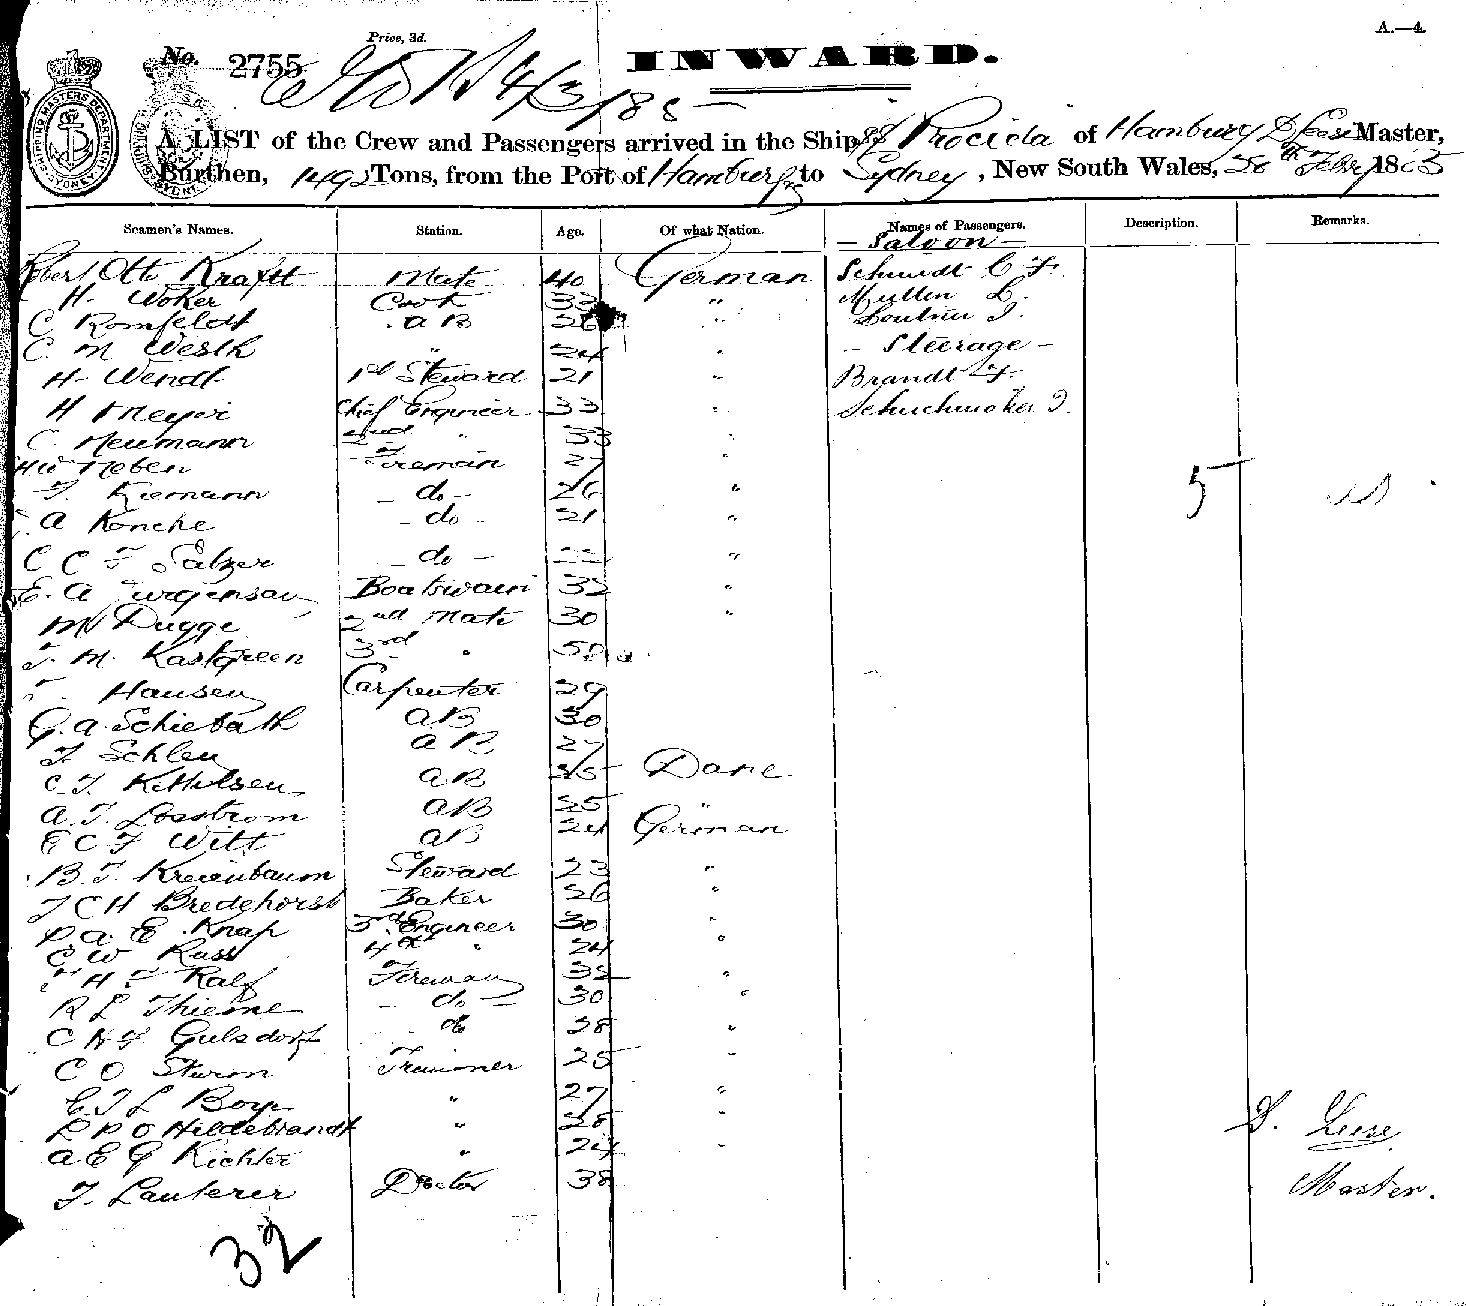 A.—4.
Price, 3d.
No. 2755
INWARD.
4/3/85
A LIST of the Crew and Passengers arrived in the Ship Procida of Hamburg D Leese Master,
Burthen, 1492 Tons, from the Port of Hamburg to Sydney, New South Wales, 28th Febry 1885
Seamen's Names. Station. Age. Of what Nation. Names of Passengers. Description. Remarks.
- Saloon -
Robert Otto Krafft Mate 40 German Schmidt C F.
H. Woker Cook 33 " Mullen L.
C Romfeldt AB 26 "
C. M Westh " 24 " - Steerage -
H Wendt 1st Steward 21 " Brandt F.
H Meyer Chief Engineer 33 " Schuchmaker J.
C. Neumann 2nd " 33 "
H W Neben Fireman 27 "
J. Kiemann - do - 26 " 5
A Konche - do - 21 "
C C F Salzer - do - 22 "
E. A Jurgensen Boatswain 32 "
M Dugge 2nd Mate 30 "
J. M. Kastgreen 3rd " 50
J. Hansen Carpenter 29
G. A. Schiebath AB 30
J. Schleu AB 27
C. J. Kethelsen AB 35 Dane
A. J. Losstrom AB 25 "
E C F Witt AB 24 German
B. J. Kreienbaum Steward 23 "
J C H Bredehorst Baker 26 "
A. E. Knap 3rd Engineer 30 "
C W Rass 4th " 24 "
J H J Ralf Fireman 32 "
R L Thieme - do - 30 "
C H F Gulsdorf do 28 "
C O Sturm Trimmer 25 "
E. J L Boye " 27 "
R P O Hildebrandt " 28 " D. Leese
A E G Richter " 24 "
J. Lauterer Doctor 38 Master.
32